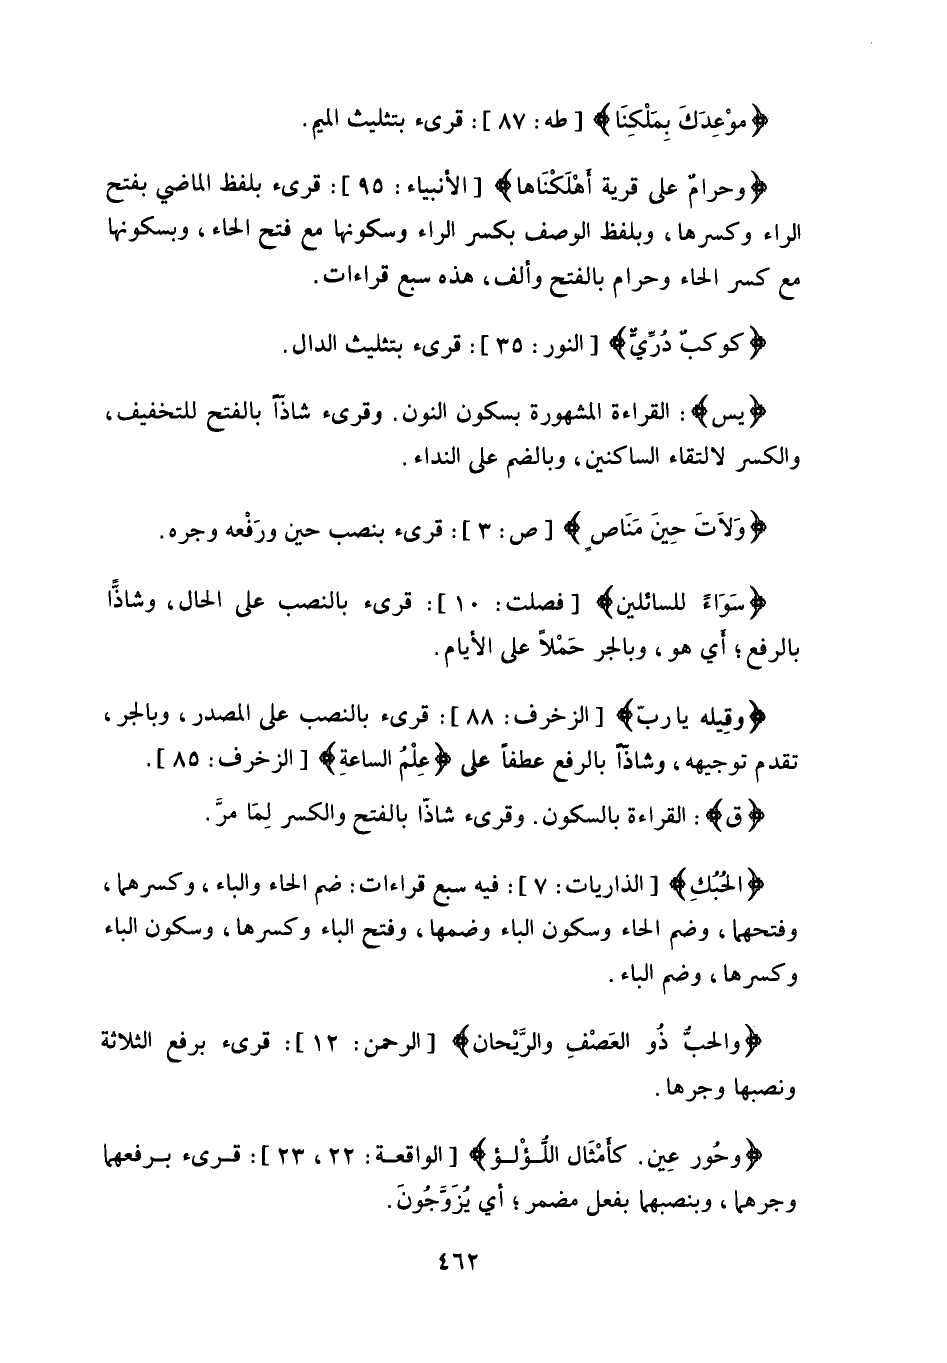 ﴿موْعِدَكَ بِمَلْكِنَا﴾ [طه: ٨٧]: قرىء بتثليث الميم.
﴿وحرامٌ على قرية أَهْلَكْنَاها﴾ [الأنبياء: ٩٥]: قرىء بلفظ الماضي بفتح
الراء وكسرها، وبلفظ الوصف بكسر الراء وسكونها مع فتح الحاء، وبسكونها
مع كسر الحاء وحرام بالفتح وألف، هذه سبع قراءات.
﴿كوكبٌ دُرِّيٌّ﴾ [النور: ٣٥]: قرىء بتثليث الدال.
﴿يس﴾: القراءة المشهورة بسكون النون. وقرىء شاذّاً بالفتح للتخفيف،
والكسر لالتقاء الساكنين، وبالضم على النداء.
﴿وَلاَتَ حِينَ مَنَاصٍ﴾ [ص: ٣]: قرىء بنصب حين ورَفْعه وجره.
﴿سَوَاءً للسائلين﴾ [فصلت: ١٠]: قرىء بالنصب على الحال، وشاذًّا
بالرفع؛ أي هو، وبالجر حَمْلاً على الأيام.
﴿وقِيله ياربّ﴾ [الزخرف: ٨٨]: قرىء بالنصب على المصدر، وبالجر،
تقدم توجيهه، وشاذّاً بالرفع عطفاً على ﴿عِلْمُ الساعةِ﴾ [الزخرف: ٨٥].
﴿ق﴾: القراءة بالسكون. وقرىء شاذّا بالفتح والكسر لِمَا مرَّ.
﴿الحُبُكِ﴾ [الذاريات: ٧]: فيه سبع قراءات: ضم الحاء والباء، وكسرهما،
وفتحهما، وضم الحاء وسكون الباء وضمها، وفتح الباء وكسرها، وسكون الباء
وكسرها، وضم الباء.
﴿والحبُّ ذُو العَصْفِ والرَّيْحان﴾ [الرحمن: ١٢]: قرىء برفع الثلاثة
ونصبها وجرها.
﴿وحُور عِين. كأَمْثَال اللُّـؤْلـؤ﴾ [الواقعـة: ٢٢، ٢٣]: قـرىء بـرفعهما
وجرهما، وبنصبهما بفعل مضمر؛ أي يُزَوَّجُونَ.
٤٦٢